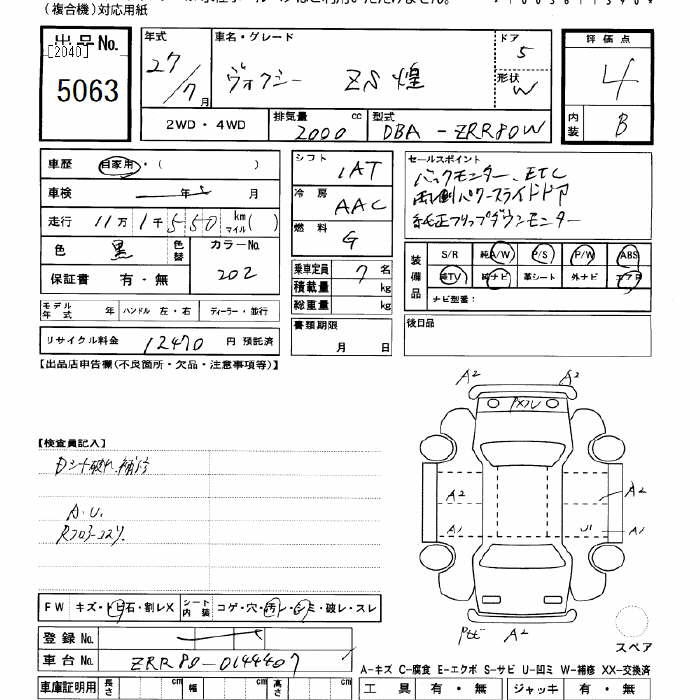 (複合機)対応用紙
出品No.
[2040]
5063
年式
27/7月
車名・グレード
ヴォクシー ZS 煌
ドア
5
形状
W
評価点
4
内装
B
2WD・4WD
排気量 cc
2000
型式
DBA-ZRR80W
車歴 自家用・( )
車検 年 月
走行 11万1千550 km マイル( )
色 黒 色替
カラーNo.
202
保証書 有・無
シフト
IAT
冷房
AAC
燃料
G
乗車定員 7 名
積載量 kg
総重量 kg
書類期限
月 日
セールスポイント
バックモニター、ETC
両側パワースライドドア
純正フリップダウンモニター
装備品
S/R 純A/W P/S P/W ABS
純TV 純ナビ 革シート 外ナビ エアB
ナビ型番:
後日品
モデル年式 年 ハンドル 左・右 ディーラー・並行
リサイクル料金 12470 円 預託済
【出品店申告欄(不良箇所・欠品・注意事項等)】
【検査員記入】
Dシート破れ補修
A.U.
A2 A2
A2 A2
A1 U1 A1
A2
スペア
FW キズ・トビ石・割レX シート内装 コゲ・穴・汚レ・シミ・破レ・スレ
登録No.
車台No. ZRR80-0144407
A-キズ C-腐食 E-エクボ S-サビ U-凹ミ W-補修 XX-交換済
車庫証明用 長さ cm 幅 cm 高さ cm
工具 有・無 ジャッキ 有・無